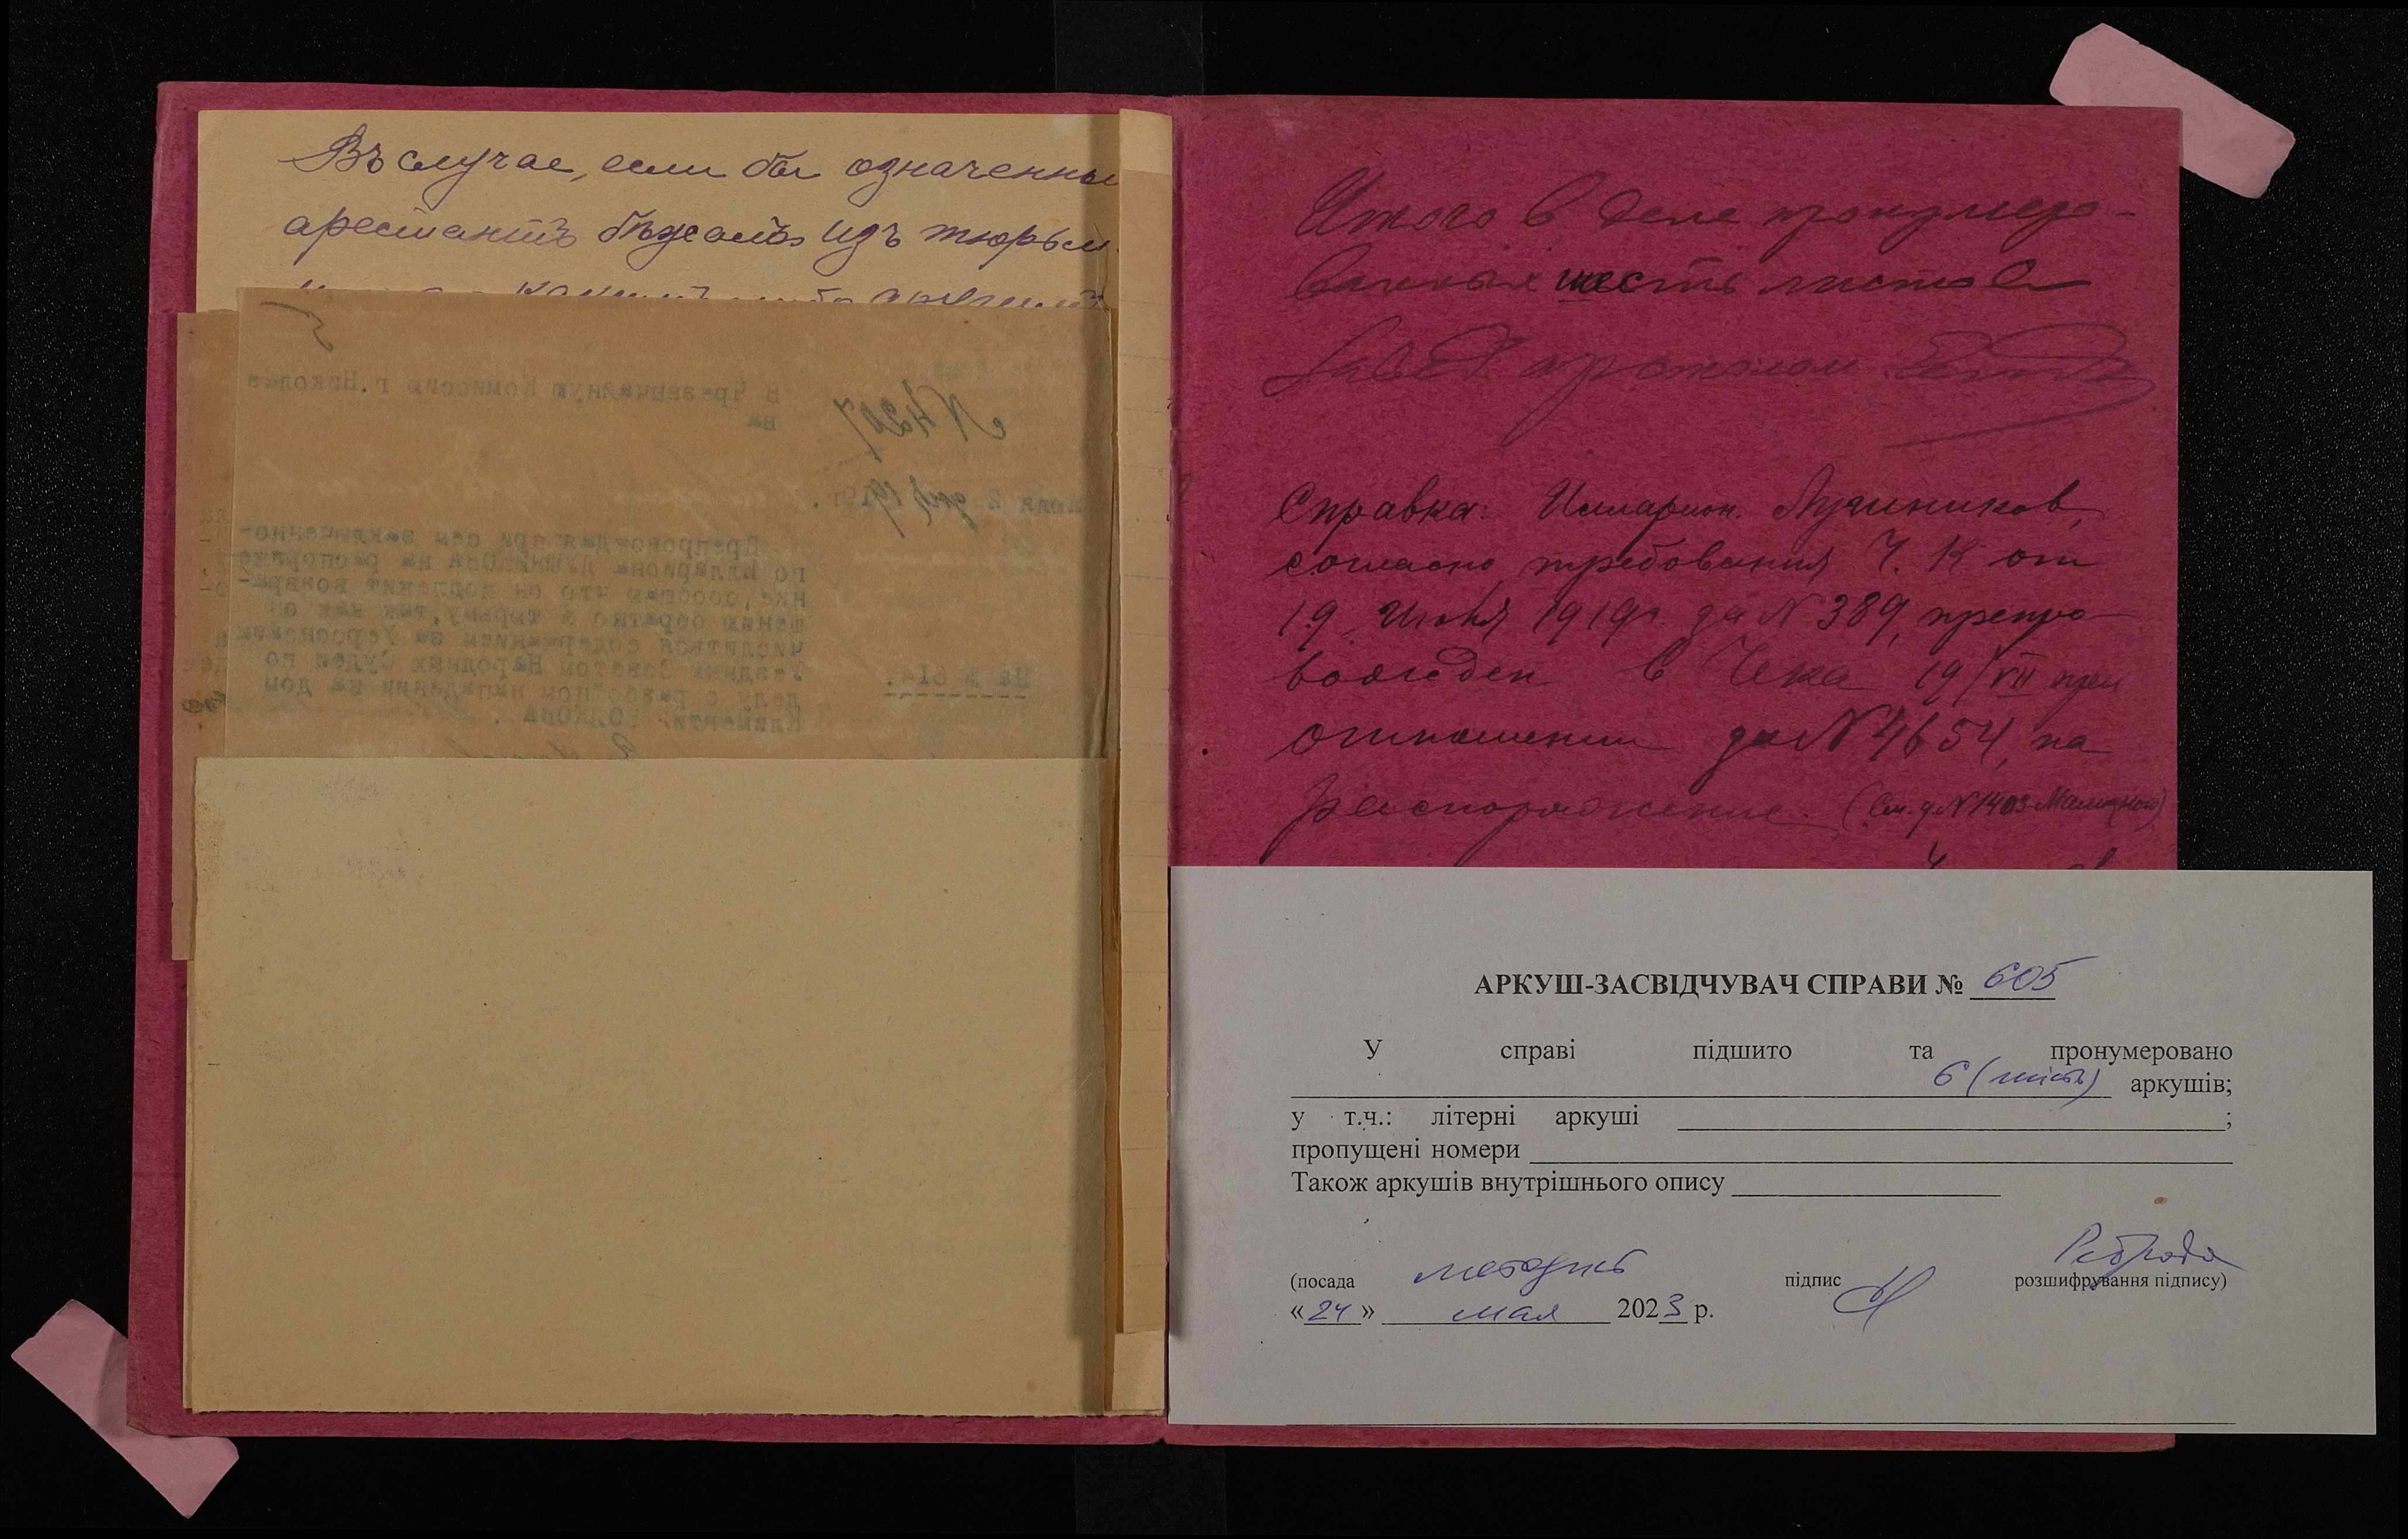 Въ случае, если бы означенны
арестантъ бѣжалъ изъ тюрьм
5
В Чрезвычайную Комиссию г. Никола
ва
N 4207
июля 2 дня 1919г.
Препровождая при сем заключенно-
го Иллариона ЛУЧИНИКОВА на распоряже
ние, сообщаю что он подлежит возвра-
щению обратно в тюрьму, так как он
числиться содержанием за Херсонским
Уездным Советом Народных Судей по
делу о разбойном нападении на дом
Климентия ВОЛКОВА.
На № 614.
Итого в деле пронумеро-
ванных шесть листов
Завед
Справка: Илларион Лучиников,
согласно требования Ч. К от
19 Июля 1919г. за N 389, препро
вожден в Чека 19/VII при
отношении за N 4654, на
распоряжение. (См. д N 1403
АРКУШ-ЗАСВІДЧУВАЧ СПРАВИ № 605
У справі підшито та пронумеровано
6 (шість) аркушів;
у т.ч.: літерні аркуші ;
пропущені номери
Також аркушів внутрішнього опису
(посада методист підпис розшифрування підпису)
«24» мая 2023 р.